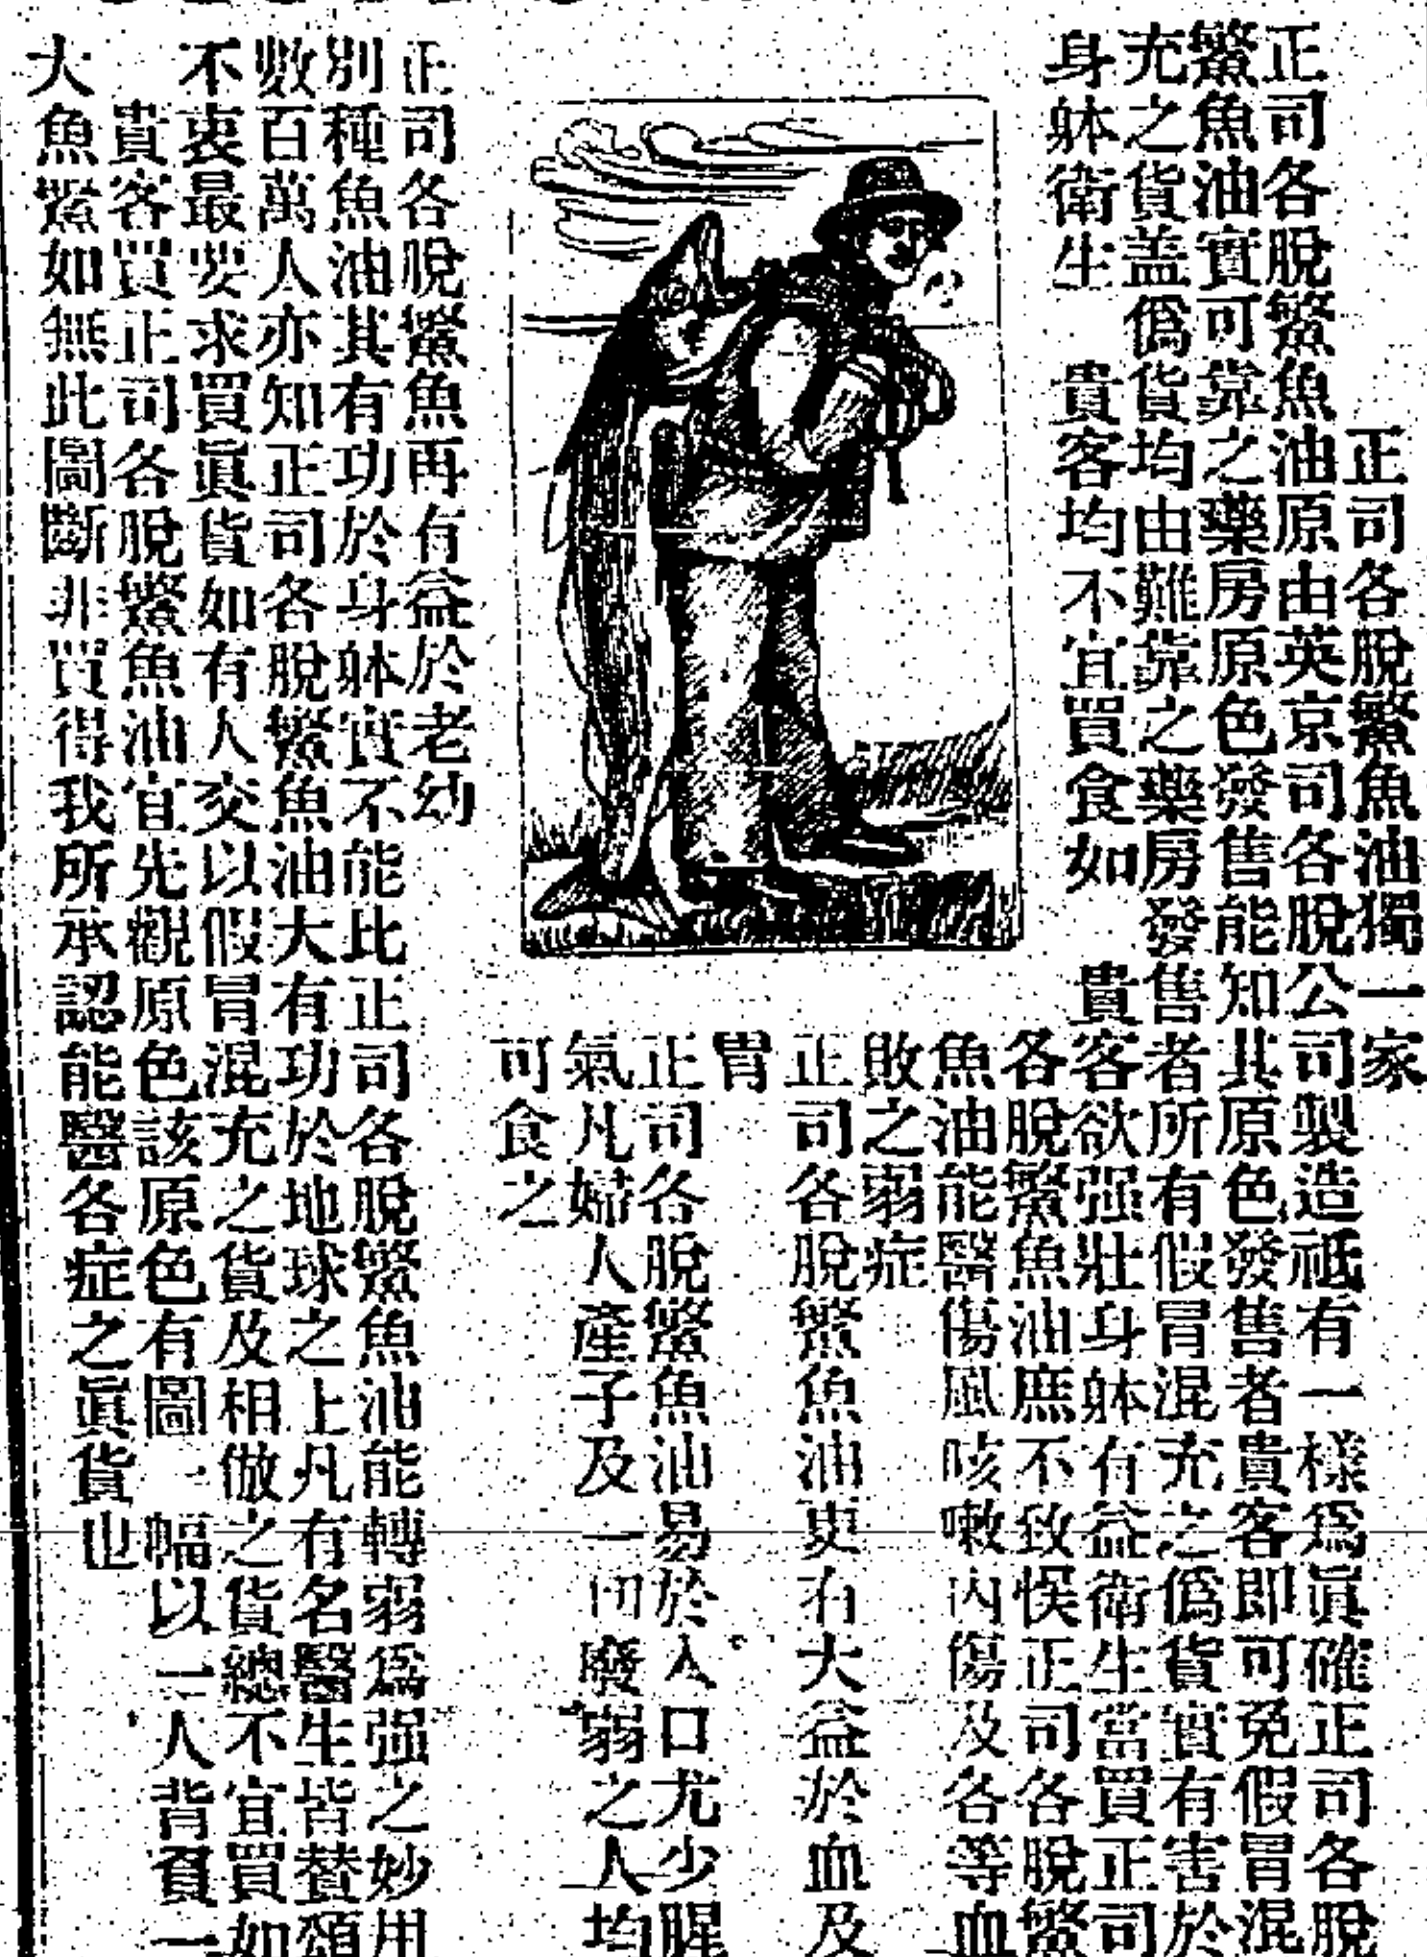 正司各脫鰵魚油獨一家
正司各脫鰵魚油原由英京司各脫公司製造祗有一樣爲眞確正司各脫
鰵魚油實可靠之藥房原色發售能知其原色發售者貴客即可免假冒混
充之貨盖僞貨均由難靠之藥房發售者所有假冒混充之僞貨實有害於
身躰衛生 貴客均不宜買食如 貴客欲强壯身躰有益衛生當買正司
各脫鰵魚油庶不致悞正司各脫鰵
魚油能醫傷風咳嗽內傷及各等血
敗之弱症
正司各脫鰵魚油更有大益於血及
胃
正司各脫鰵魚油易於入口尤少腥
氣凡婦人產子及一切廢弱之人均
可食之
正司各脫鰵魚再有益於老幼
別種魚油其有功於身躰實不能比正司各脫鰵魚油能轉弱爲强之妙用
數百萬人亦知正司各脫鰵魚油大有功於地球之上凡有名醫生皆賛頌
不衰最要求買眞貨如有人交以假冒混充之貨及相倣之貨總不宜買如
貴客買正司各脫鰵魚油宜先觀原色該原色有圖一幅以一人背負一
大魚鰵如無此圖斷非買得我所承認能醫各症之眞貨也